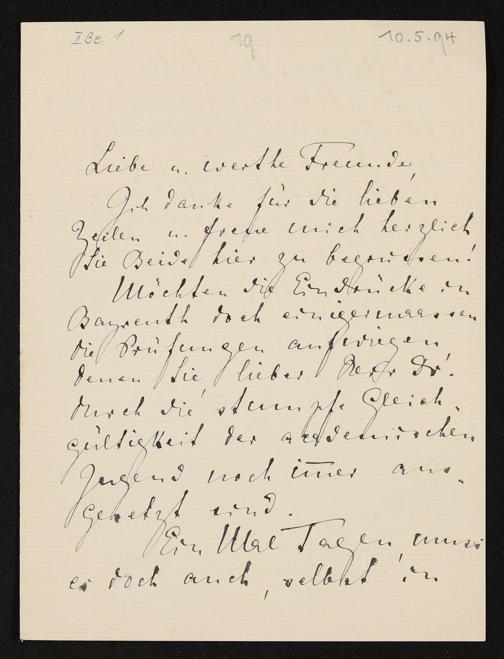 IIBe 1
19
10.5.94
Liebe u. werthe Freunde,
Ich danke für die lieben
Zeilen u. freue mich herzlich
Sie Beide hier zu begrüssen!
Möchten die Eindrücke in
Bayreuth doch einigermaassen
die Prüfungen aufwiegen
denen Sie, lieber Herr Dr.
durch die stumpfe Gleich„
gültigkeit der academischen
Jugend noch im̅er aus„
gesetzt sind.
Ein Mal Tagen, muss
es doch auch, selbst in